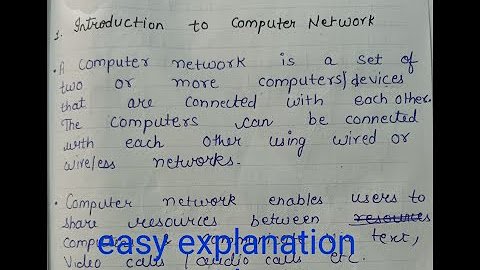 1. Introduction to Computer Network
• A computer network is a set of
two or more computers/devices
that are connected with each other.
The computers can be connected
with each other using wired or
wireless networks.
• Computer network enables users to
share resources between resources
computers text,
Video calls / audio calls etc.
easy explanation